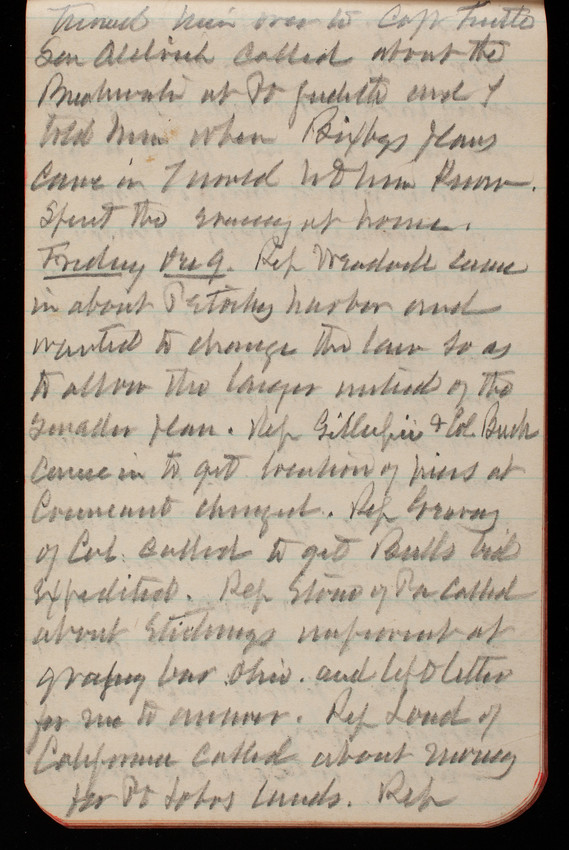 turned him over to Capt Tuttle
Sen Aldrich called about the
Breakwater at Pt Judith and I
told him when Bixbys plans
came in I would let him know.
Spent the evening at home.
Friday Dec 9. Rep came
in about Petoskey harbor and
wanted to change the law so as
to allow the larger instead of the
smaller plan. Rep Gillespie & Col Buck
came in to get location of piers at
Conneaut changed. Rep
of Cal. called to get Bulls bid
expedited. Rep Stone of Pa called
about Etichings improvmt at
bar Ohio. and left letter
for me to answer. Rep Loud of
California called about money
for Pt Lobos lands. Rep